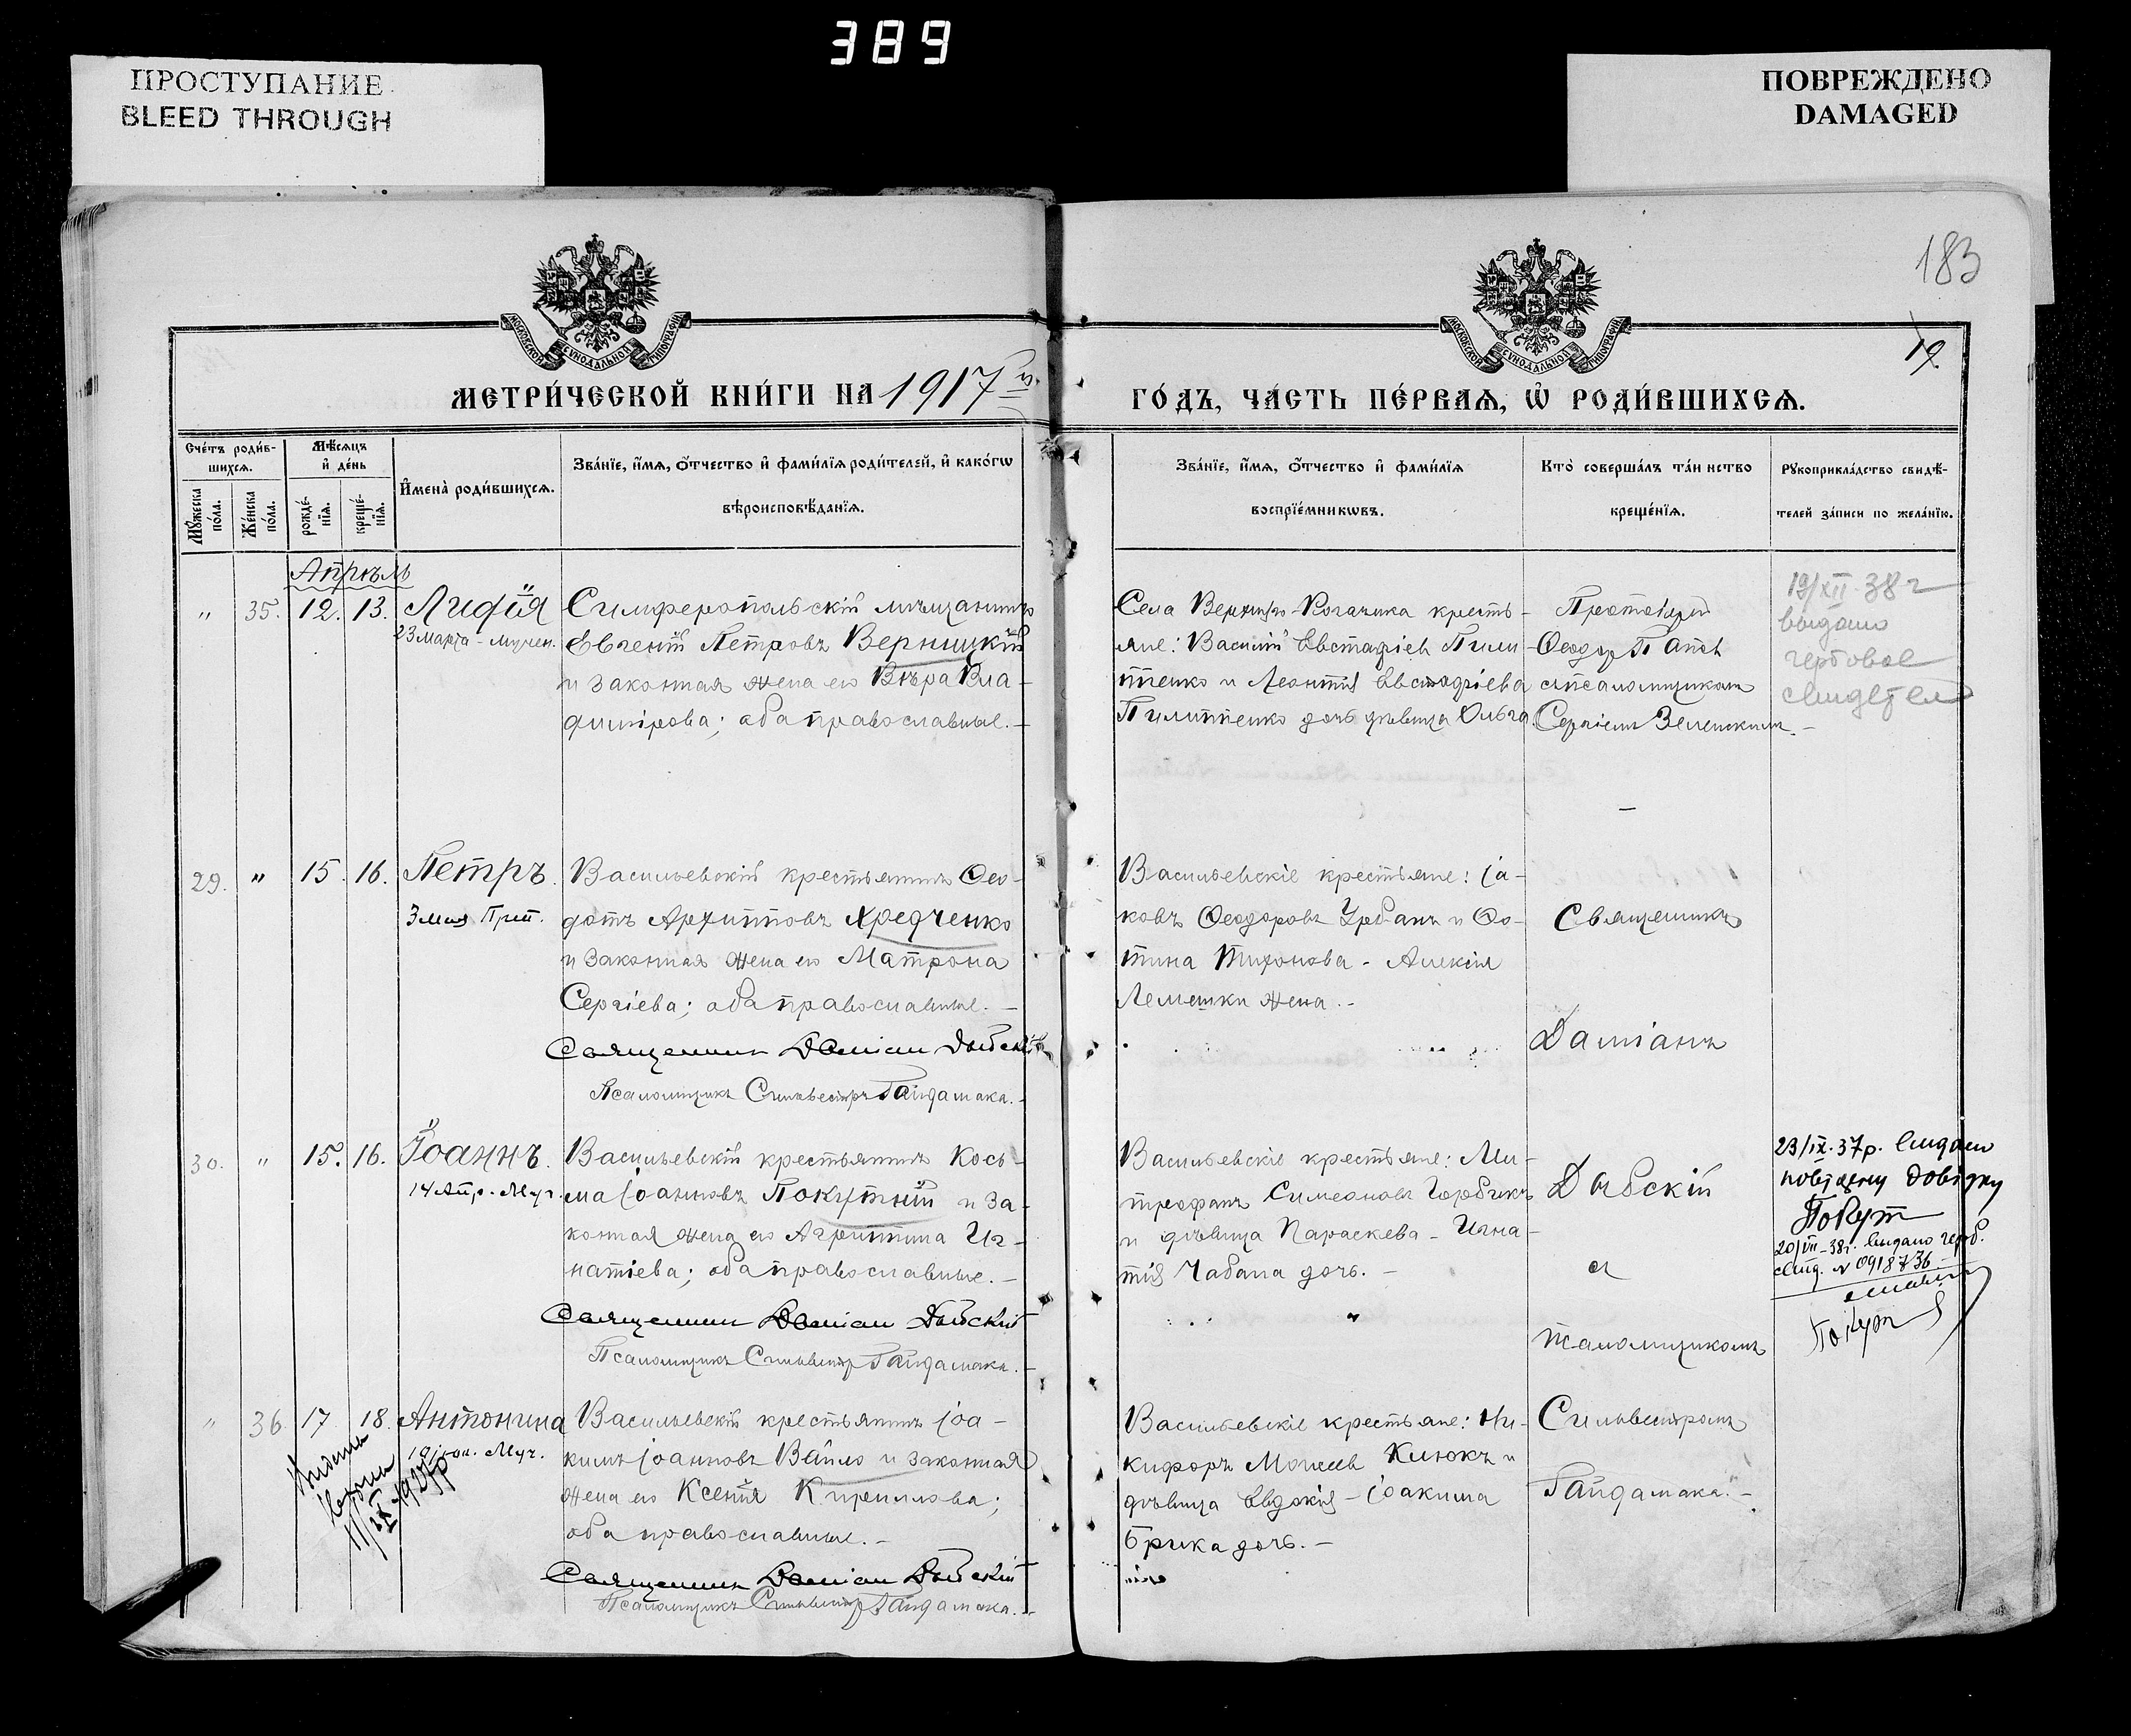 389
ПРОСТУПАНИЕ
BLEED THROUGH
ПОВРЕЖДЕНО
DAMAGED
183
МОСКОВСКОЙ СѴНОДАЛЬНОЙ ТИПОГРАФІИ
МОСКОВСКОЙ СѴНОДАЛЬНОЙ ТИПОГРАФІИ
МЕТРИ́ЧЕСКОЙ КНИ́ГИ НА 1917й
ГО́ДЪ, ЧА́СТЬ ПЕ́РВАѦ, Ѡ РОДИ́ВШИХСѦ.
Сче́тъ роди́в-
шихсѧ.
Мѣ́сѧцъ
и҆ де́нь
Мꙋ́жеска
по́ла.
Же́нска
по́ла.
рожде́-
нїѧ.
креще́-
нїѧ.
И҆мена̀ роди́вшихсѧ.
Зва́нїе, и҆́мѧ, о҆́тчество и҆ фами́лїѧ роди́телей, и҆ како́гѡ
вѣроисповѣ́данїѧ.
Зва́нїе, и҆́мѧ, о҆́тчество и҆ фами́лїѧ
воспрїе́мникѡвъ.
Кто̀ соверша́лъ та́инство
креще́нїѧ.
Рꙋкоприкла́дство свидѣ́-
телей за́писи по жела́нїю.
Апрѣль
" 35. 12. 13. Лидія
23 марта - мучен.
Симферопольскій мѣщанинъ
Евгеній Петровъ Верницкій
и законная жена его Вѣра Вла-
димірова; оба православные. -
Села Верхняго-Рогачика кресть-
яне: Василій Евстафіев Пили-
пенко и Леонтія Евстафіева
Пилипенко дочь дѣвица Ольга.
Протоіерей
Ѳеодор Попов
съ псаломщикомъ
Сергіемъ Зеленскимъ. -
19/XII 38 г
выдано
гербовое
свидетел
29. " 15. 16. Петръ.
3 мая Преп.
Васильевскій крестьянинъ Ѳео-
дотъ Архипповъ Хредченко
и законная жена его Матрона
Сергіева; оба православные. -
Священник Даміан Дыбскій
Псаломщикъ Сильвестръ Гайдамака. -
Васильевскіе крестьяне: Іа-
ковъ Ѳеодоровъ Урбанъ и Ѳо-
тина Тихонова - Алексія
Лемешки жена. -
Священникъ
Даміанъ
30. " 15. 16. Іоаннъ.
14 Апр. - Муч.
Васильевскій крестьянинъ Кось-
ма Іоанновъ Покутній и за-
конная жена его Агриппина Иг-
натіева; оба православные. -
Священник Даміан Дыбскій
Псаломщикъ Сильвестр Гайдамака. -
Васильевскіе крестьяне: Ми-
трофанъ Симеоновъ Горбикъ
и дѣвица Параскева - Игна-
тія Чабана дочь. -
Дыбскій
съ
псаломщикомъ
23/IX. 37р. видано
повторну довідку
Покут
20/VII-38г. выдано герб.
свид. № 0918736
" 36. 17. 18. Антонина
Муч.
Васильевскій крестьянинъ Іоа-
кимъ Іоанновъ Вайло и законная
жена его Ксенія Кириллова;
оба православные. -
Священник Даміан Дыбскій
Псаломщикъ Сильвестр Гайдамака. -
Васильевскіе крестьяне: Ни-
кифоръ Моисеев Клюкъ и
дѣвица Евдокія - Іоакима
Брика дочь. -
Сильвестромъ
Гайдамака. -